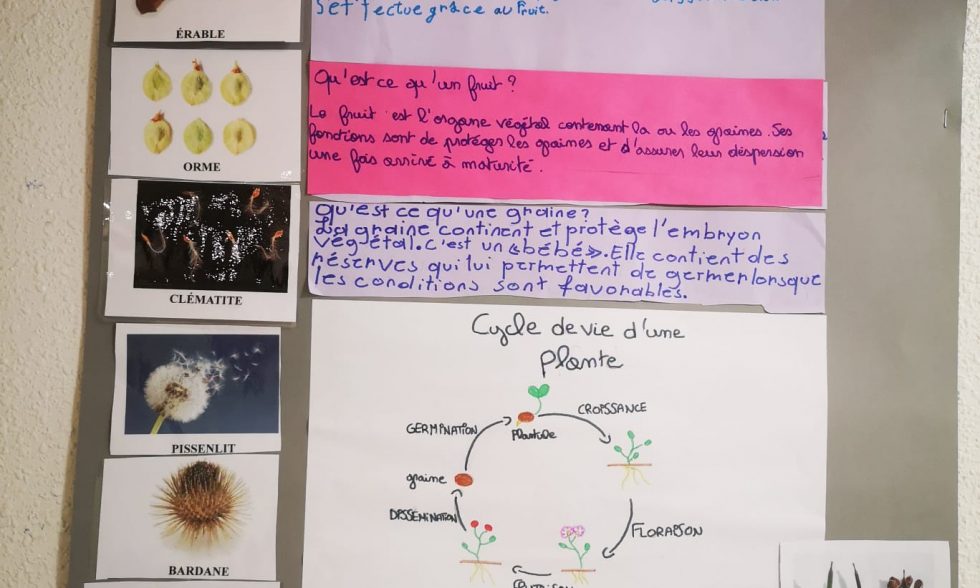 ÉRABLE
ORME
CLÉMATITE
PISSENLIT
BARDANE
s'effectue grâce au fruit.
Qu'est ce qu'un fruit ?
Le fruit est l'organe végétal contenant la ou les graimes. Ses
fonctions sont de protéger les graimes et d'assurer leur dispersion
une fois arrivé à maturité.
qu'est ce qu'une graine?
La graine continent et protège l'embryon
végétal. C'est un «bébé». Elle contient des
réserves qui lui permettent de germer lorsque
les conditions sont favorables.
Cycle de vie d'une
plante
CROISSANCE
GERMINATION
Plantule
graine
DISSÉMINATION
FLORAISON